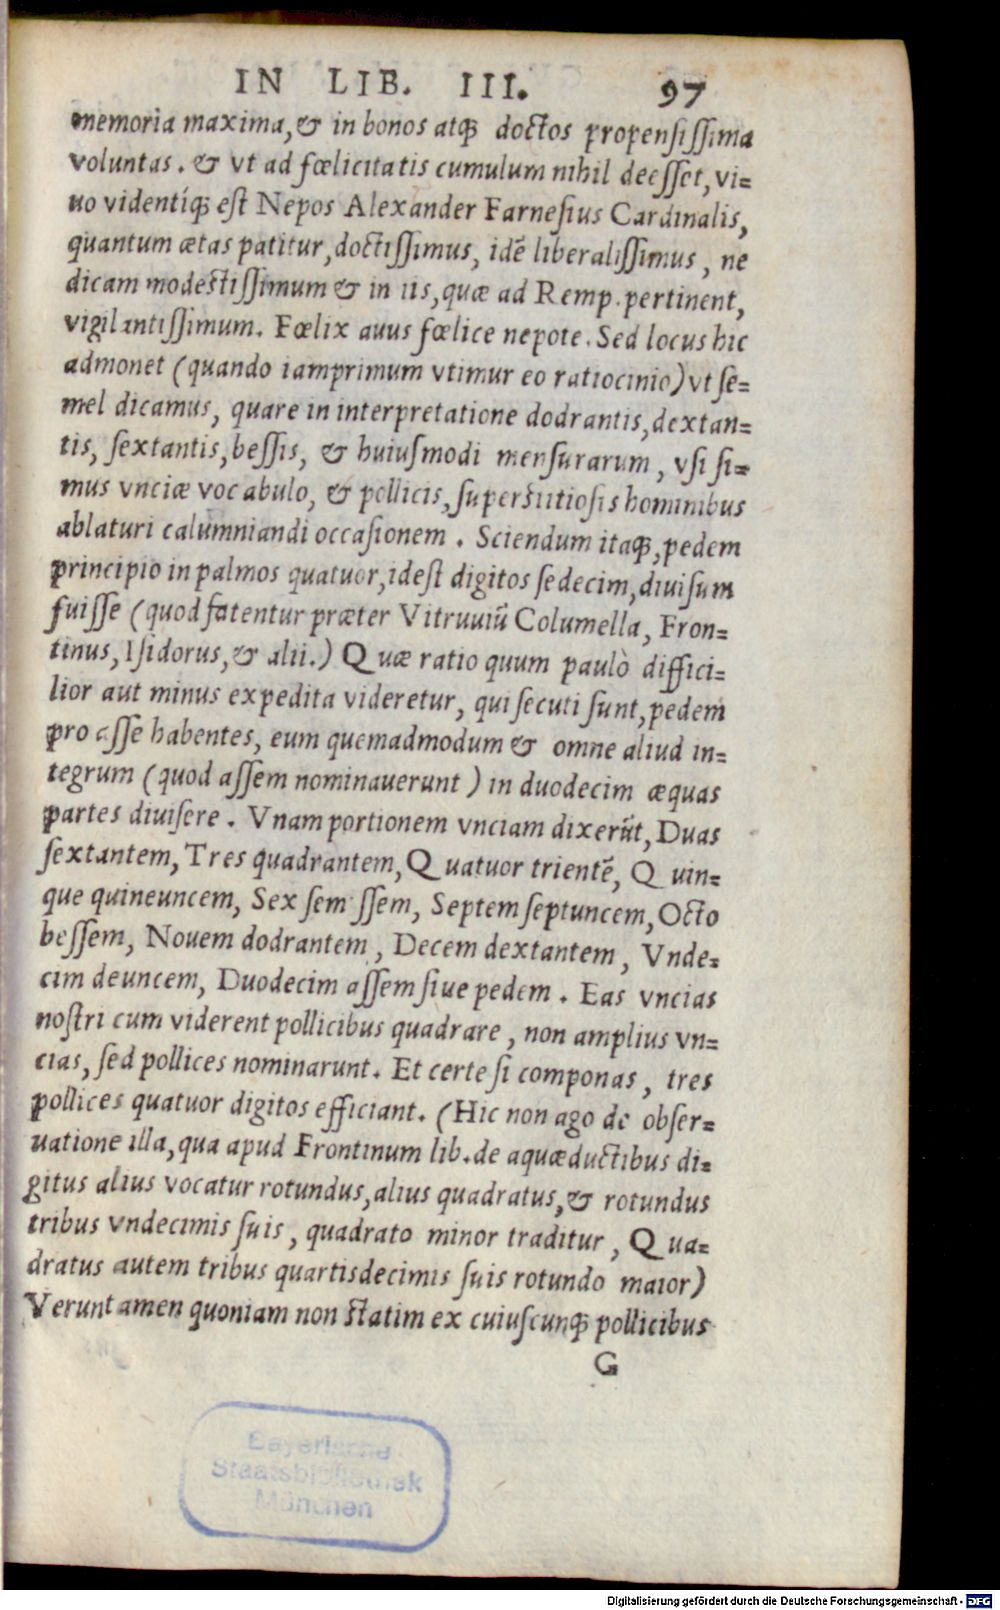 IN LIB. III. 97
memoria maxima, & in bonos atq́; doctos propensissima
voluntas. & vt ad fœlicitatis cumulum nihil deesset, vi=
uo videntíq́; est Nepos Alexander Farnesius Cardinalis,
quantum ætas patitur, doctissimus, idē liberalissimus, ne
dicam modestissimum & in iis, quæ ad Remp. pertinent,
vigilantissimum. Fœlix auus fœlice nepote. Sed locus hic
admonet (quando iamprimum vtimur eo ratiocinio) vt se=
mel dicamus, quare in interpretatione dodrantis, dextan=
tis, sextantis, bessis, & huiusmodi mensurarum, vsi si=
mus vnciæ vocabulo, & pollicis, superstitiosis hominibus
ablaturi calumniandi occasionem. Sciendum itaq́;, pedem
principio in palmos quatuor, idest digitos sedecim, diuisum
fuisse (quod fatentur præter Vitruuiū Columella, Fron=
tinus, Isidorus, & alii.) Quæ ratio quum paulò diffici=
lior aut minus expedita videretur, qui secuti sunt, pedem
pro asse habentes, eum quemadmodum & omne aliud in=
tegrum (quod assem nominauerunt) in duodecim æquas
partes diuisere. Vnam portionem vnciam dixerūt, Duas
sextantem, Tres quadrantem, Quatuor trientē, Quin=
que quineuncem, Sex semissem, Septem septuncem, Octo
bessem, Nouem dodrantem, Decem dextantem, Vnde=
cim deuncem, Duodecim assem siue pedem. Eas vncias
nostri cum viderent pollicibus quadrare, non amplius vn=
cias, sed pollices nominarunt. Et certe si componas, tres
pollices quatuor digitos efficiant. (Hic non ago de obser=
uatione illa, qua apud Frontinum lib. de aquæductibus di=
gitus alius vocatur rotundus, alius quadratus, & rotundus
tribus vndecimis suis, quadrato minor traditur, Qua=
dratus autem tribus quartisdecimis suis rotundo maior)
Veruntamen quoniam non statim ex cuiuscunq́; pollicibus
G
Bayerische
Staatsbibliothek
München
Digitalisierung gefördert durch die Deutsche Forschungsgemeinschaft - DFG